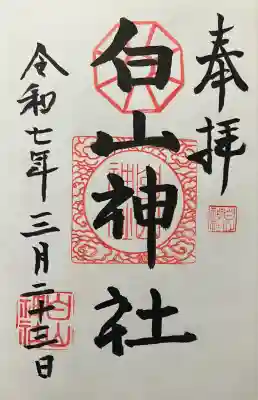 奉拝
白山神社
令和七年三月二十三日